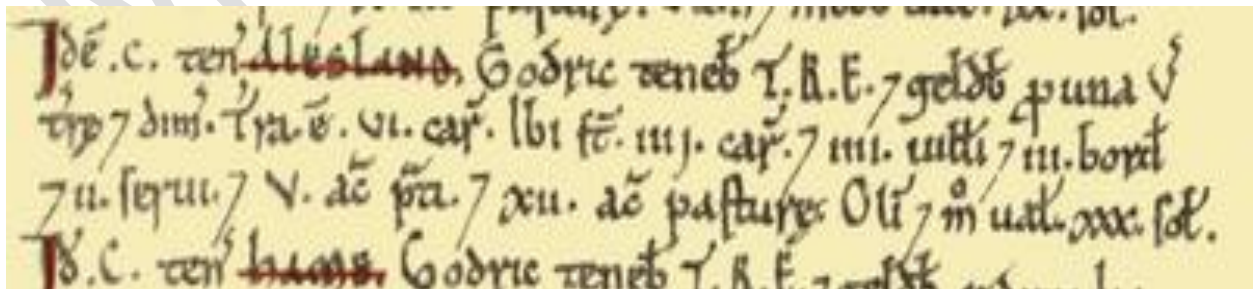 Idē .C. ten' ALESLAND. Godric teneb̄ T.R.E. ⁊ geld̄b p una v̓
træ ⁊ dim̓. T̓ra. ē. vi. car̄. Ibi st̄. iiij. car̄. ⁊ iiii. uilłi ⁊ iii. bord̄
⁊ ii. serui. ⁊ v. ac̄ p̄ti. ⁊ xii. ac̄ pasturę. Olī ⁊ m̊ ual̄. xxx. sol̄.
Id̄. C. ten' HAME. Godric teneb̄ T.R.E. ⁊ geld̄b